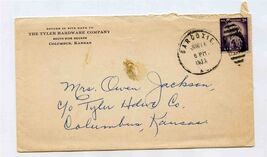 RETURN IN FIVE DAYS TO
THE TYLER HARDWARE COMPANY
SOUTH SIDE SQUARE
COLUMBUS, KANSAS
SARCOXIE
6 PM
Mrs. Owen Jackson,
c/o Tyler Hdwe Co.
Columbus, Kansas